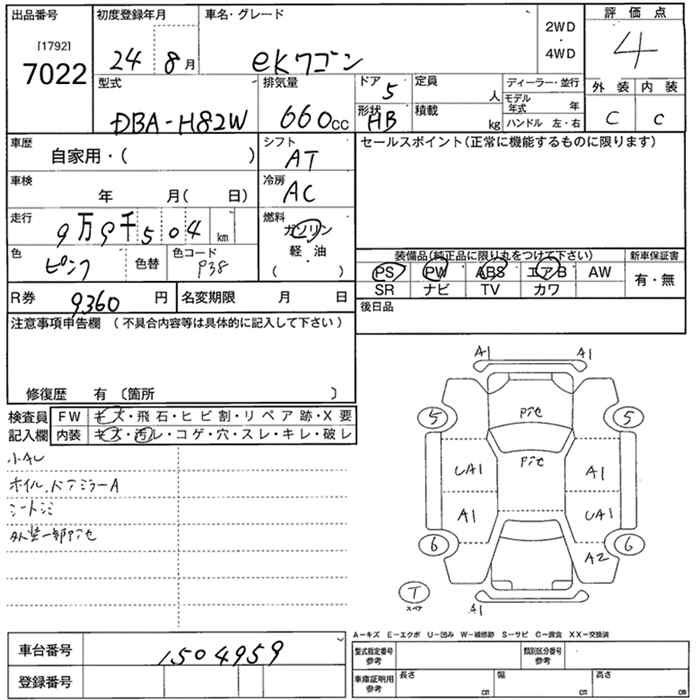 出品番号 [1792] 7022
初度登録年月 24年 8月
車名・グレード eKワゴン
2WD・4WD
評価点 4
外装 C 内装 C
型式 DBA-H82W
排気量 660cc
ドア 5
形状 HB
定員 人
積載 kg
ディーラー・並行
モデル年式 年
ハンドル 左・右
車歴 自家用・( )
シフト AT
セールスポイント(正常に機能するものに限ります)
車検 年 月( 日)
冷房 AC
走行 9万9千504km
燃料 ガソリン・軽油 ( )
色 ピンク 色替 色コード P38
装備品(純正品に限り丸をつけて下さい)
PS PW ABS エアB AW
SR ナビ TV カワ
新車保証書 有・無
R券 9360円
名変期限 月 日
後日品
注意事項申告欄(不具合内容等は具体的に記入して下さい)
修復歴 有 〔箇所 〕
検査員記入欄
FW キズ・飛石・ヒビ割・リペア跡・X要
内装 キズ・汚レ・コゲ・穴・スレ・キレ・破レ
小キレ
オイル、ドアミラーA
シートシミ
外装一部アセ
A1 A1
アセ
5 5
アセ
UA1 A1
A1 UA1
6 6
A2
T
スペア
A1
A－キズ E－エクボ U－凹み W－補修跡 S－サビ C－腐食 XX－交換済
車台番号 1504959
登録番号
型式指定番号 参考
類別区分番号 参考
車庫証明用 参考 長さ cm 幅 cm 高さ cm